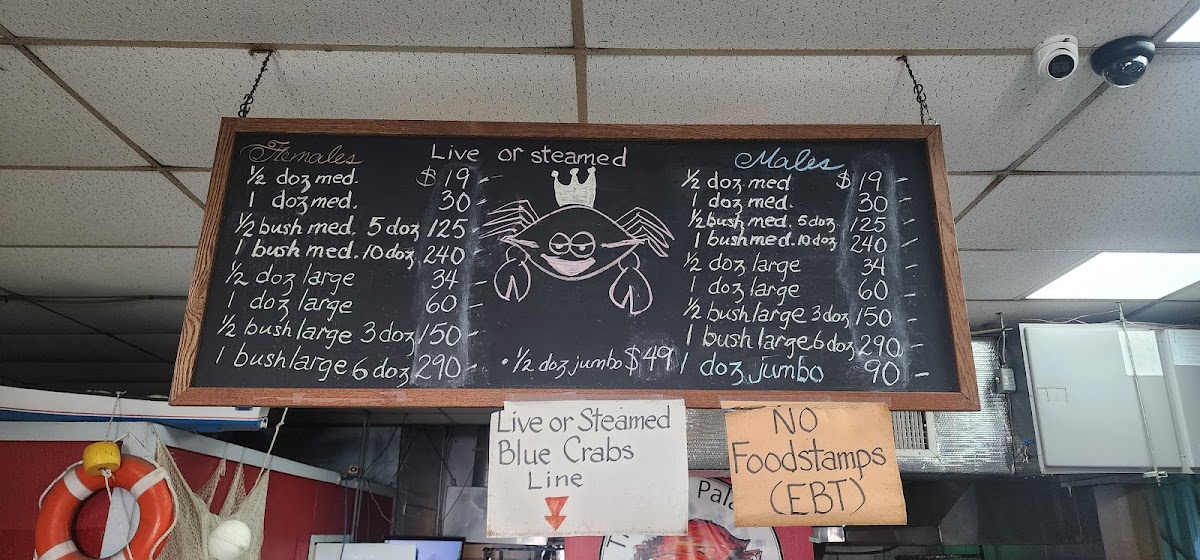 Females
½ doz med. $19
1 doz med. 30
½ bush med. 5 doz 125
1 bush med. 10 doz 240
½ doz large 34
1 doz large 60
½ bush large 3 doz 150
1 bush large 6 doz 290
Live or steamed
• ½ doz jumbo $49
Males
½ doz med $19
1 doz med. 30
½ bush med. 5 doz 125
1 bush med. 10 doz 240
½ doz large 34
1 doz large 60
½ bush large 3 doz 150
1 bush large 6 doz 290
1 doz jumbo 90
Live or Steamed
Blue Crabs
Line
NO
Foodstamps
(EBT)